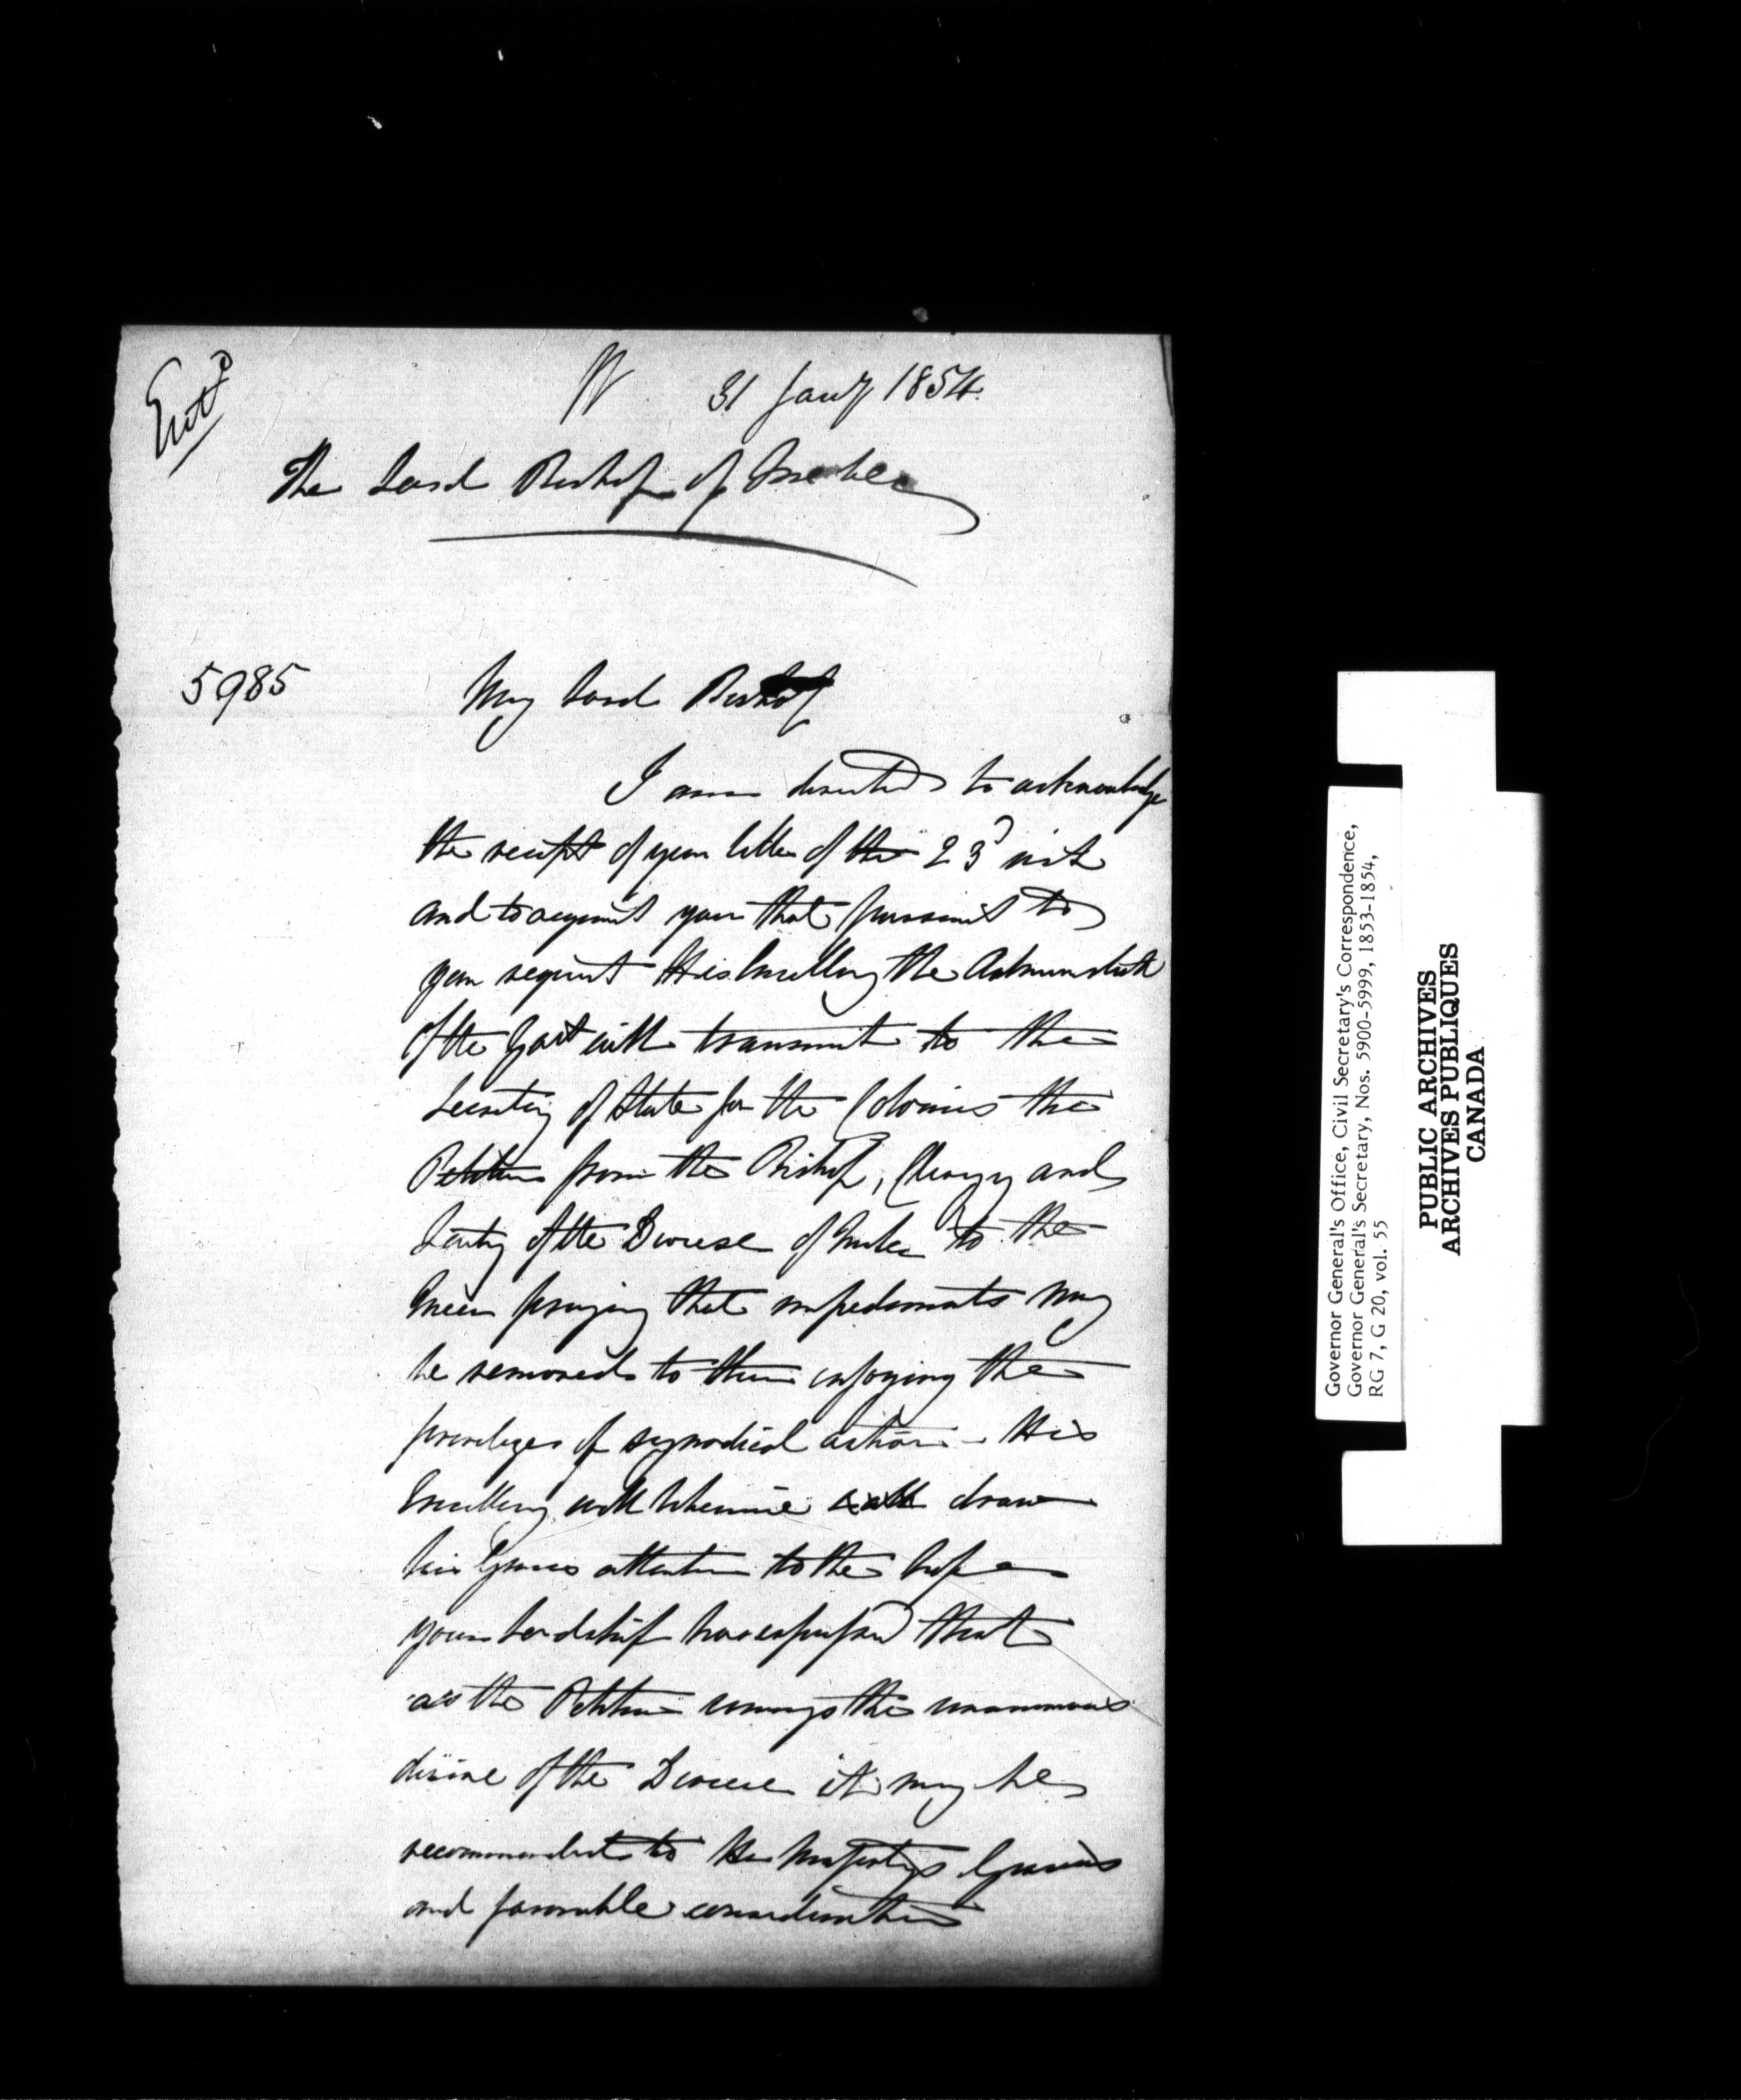 Entd
31 Jany 1854.
The Lord Bishop of Quebec
5985
My Lord Bishop
I am directed to acknowledge
the receipt of your letter of the 23d inst
and to acquaint you that pursuant to
your request His Excellency the Administrator
of the Govt will transmit to the
Secretary of State for the Colonies the
Petition from the Bishop, Clergy and
Laity of the Diocese of Quebec to the
Queen praying that impediments may
be removed to their enjoying the
privileges of synodical action - His
Excellency will likewise draw
his Graces attention to the hope
your Lordship has expressed that
as the Petition conveys the unanimous
desire of the Diocese it may be
recommended to Her Majesty's Gracious
and favorable consideration
Governor General's Office, Civil Secretary's Correspondence,
Governor General's Secretary, Nos. 5900-5999, 1853-1854,
RG 7, G 20, vol. 55
PUBLIC ARCHIVES
ARCHIVES PUBLIQUES
CANADA